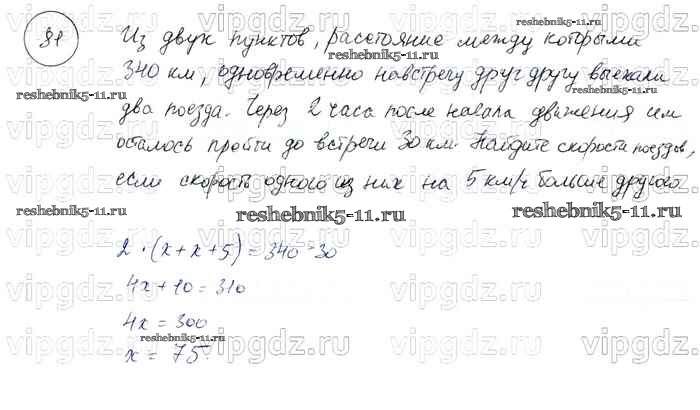 81
Из двух пунктов, расстояние между которыми
340 км, одновременно навстречу друг другу выехали
два поезда. Через 2 часа после начала движения им
осталось пройти до встречи 30 км. Найдите скорости поездов,
если скорость одного из них на 5 км/ч больше другого
2 · (x + x + 5) = 340 - 30
4x + 10 = 310
4x = 300
x = 75
vipgdz.ru vipgdz.ru vipgdz.ru
reshebnik5-11.ru